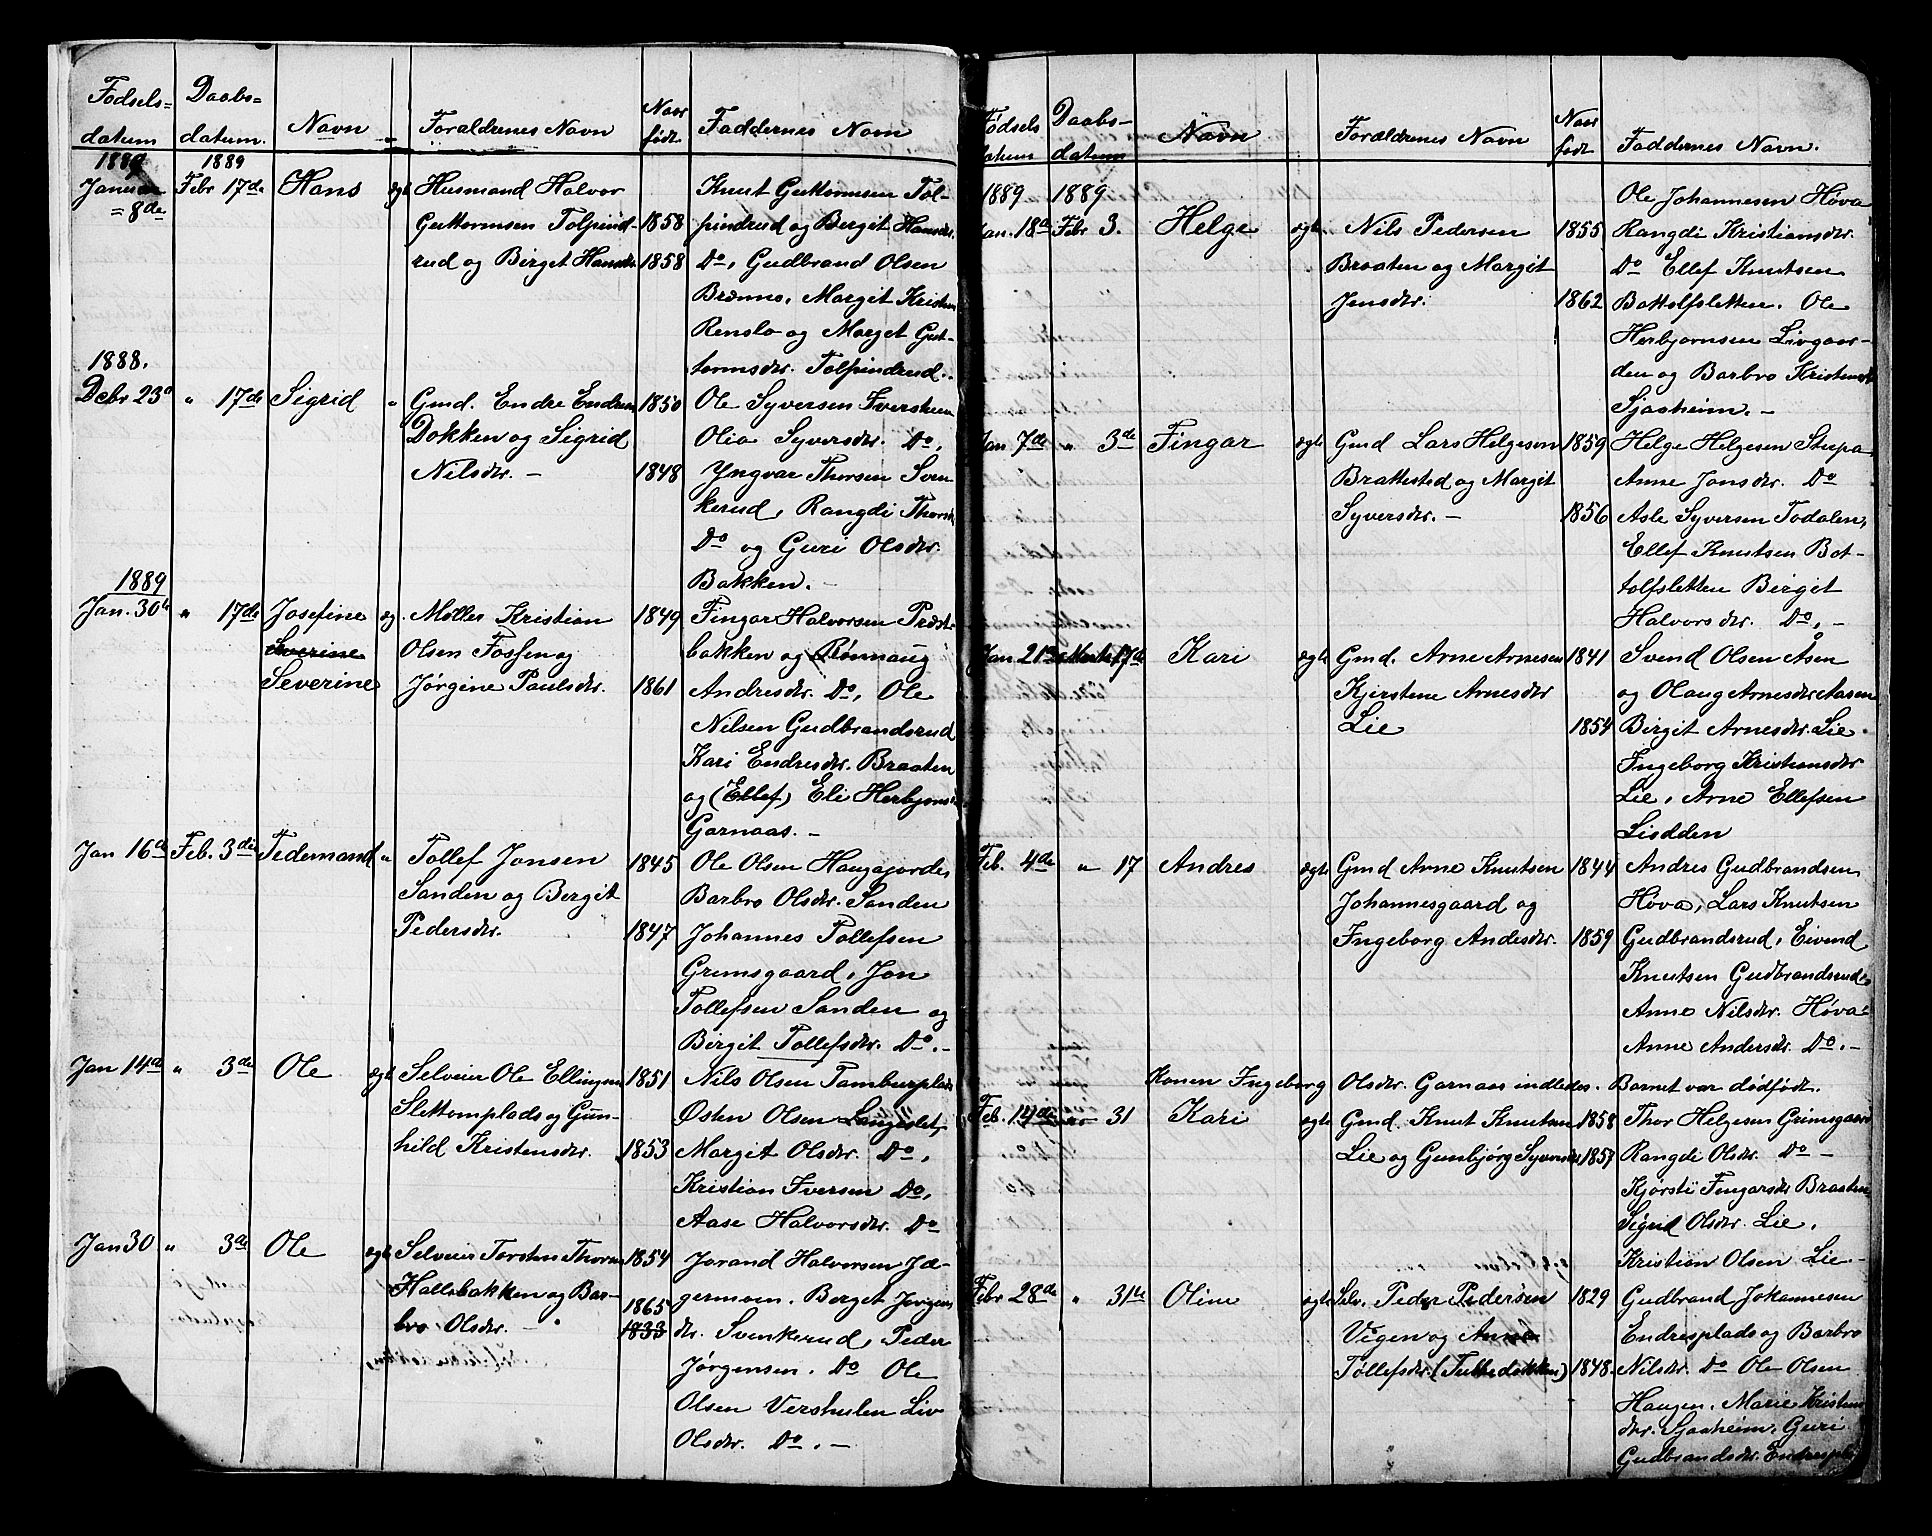 Fødsels-
datum
Daabs-
datum.
Navn
Forældrenes Navn
Naar
født
Faddernes Navn
1889
Januar
= 8de
1889
Febr 17de
Hans
ægt
Husmand Halvor
Guttormsen Tolpind-
rud og Birget Hansdr.
1858
1858
Knut Guttormsen Tol-
pindrud og Bergit Hansdr.
Do, Gudbrand Olsen
Brænno, Margit Kristens
Renslo og Marget Gut-
tormsdr. Tolpindrud.
1888.
Debr 23d
" 17de
Sigrid
"
Gmd. Endre Endresen
Dokken og Sigrid
Nilsdr. -
1850
1848
Ole Syversen Iversheim
Olia Syversdr. Do,
Yngvar Thorsen Sven-
kerud, Rangdi Thorsdr
Do og Guri Olsdr.
Bakken. -
1889
Jan. 30te
" 17de
Josefine
Severine
Severine
æg.
Møller Kristian
Olsen Fossen og
Jørgine Paulsdr.
1849
1861
Fingar Halvorsen Præst-
bakken og Rønnaug
Andresdr. Do, Ole
Nilsen Gudbrandsrud
Kari Endresdr. Braaten
og (Ellef) Eli Herbjørns
Garnaas. -
Jan 16de
Feb. 3die
Tidemand
"
Tollef Jonsen
Sanden og Bergit
Pedersdr.
1845
1847
Ole Olsen Haugagjordet,
Barbro Olsdr. Sanden
Johannes Tollefsen
Grimsgaard, Jon
Tollefsen Sanden og
Birgit Tollefsdr. Do. -
Jan 14de
" 3de
Ole
ægt
Selveier Ole Ellingsen
Slettemplads og Gun-
hild Kristensdr.
1851
1853
Nils Olsen Tamburplads
Østen Olsen Langeslet,
Margit Olsdr. Do,
Kristian Iversen Do,
Aase Halvorsdr. Do
Jan 30
" 3de
Ole
ægt
Selveier Torsten Thorsen
Hallsbakken og Bar-
bro Olsdr. -
1854
1865
1833
Jorand Halvorsen Jæ-
germoen. Berget Jørgens
dr. Svenkerud, Peder
Jørgensen. Do Ole
Olsen Vershulen Liv
Olsdr. Do. -
Fødsels
datum
Daabs-
datum
Navn
Forældrenes Navn
Naar
født
Faddernes Navn.
1889
Jan. 18de
1889
Febr 3.
Helge
ægte.
Nils Pedersen
Braaten og Margit
Jensdtr.
1855
1862
Ole Johannesen Høva
Rangdi Kristiansdr.
Do Ellef Knutsen
Bottolfsletten. Ole
Herbjørnsen Livgaar-
den og Barbro Kristensdr
Sjaaheim. -
Jan 7de
" 3de
Fingar
ægte
Gmd Lars Helgesen
Brattestad og Margit
Syversdr. -
1859
1856
Helge Helgesen Stupa
Anne Jonsdr. Do
Asle Syversen Todalen,
Ellef Knutsen Bot-
tolfsletten Birgit
Halvorsdr. Do, -
Jan 21de
Marts 17de
Kari
ægte
Gmd. Arne Arnesen
Kjerstine Arnesdr
Lie
1841
1854
Svend Olsen Åsen
og Olaug Arnesdr Aasen
Birgit Arnesdr. Lie.
Ingeborg Kristensdr
Lie, Arne Ellefsen
Liodden
Feb. 4de
" 17
Andres
ægte
Gmd Arne Knutsen
Johannesgaard og
Ingeborg Andesdr.
1844
1859
Andres Gudbrandsen
Høva, Lars Knutsen
Gudbrandsrud, Eivend
Knutsen Gudbrandsrud,
Anne Nilsdr. Høva
Anne Andersdr Do. -
Konen Ingeborg Olsdr. Garnaas indledes. Barnet var dødfødt.
Feb. 14de
31
Kari
ægte
Gmd. Knut Knutsen
Lie og Gunbjørg Syversdr
1858
1857
Thor Helgesen Grimsgaard
Rangdi Olsdr. Do -
Kjørsti Fingarsdr Braaten
Sigrid Olsdr. Lie,
Kristian Olsen Lie -
Febr 28de
" 31te
Oline
ægte
Selv. Peder Pedersen
Vigen og Anne
Tollefsdr. (Tubbedokken)
1829
1848.
Gudbrand Johannesen
Endresplads og Barbro
Nilsdr. Do Ole Olsen
Haugen. Marie Kristens
dr. Sjaaheim. Guri
Gudbrandsdr. Endrespl